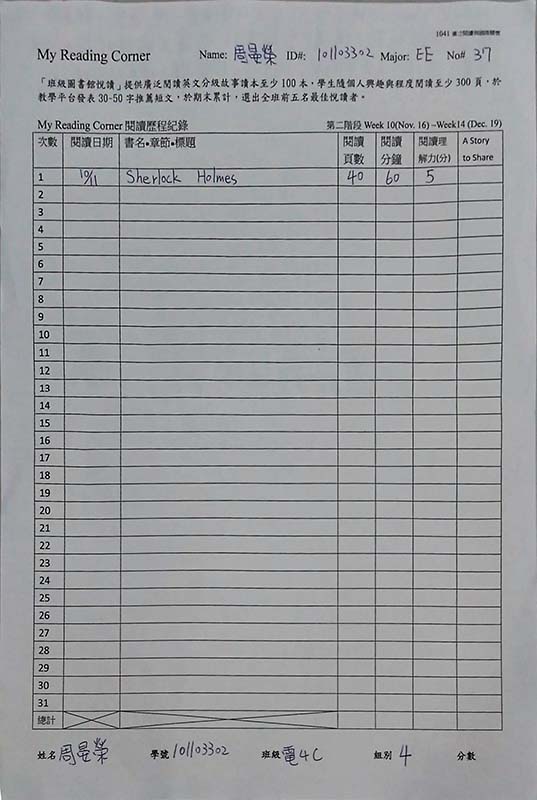 1041 書出閱讀與國際關懷
My Reading Corner Name: 周晏榮 ID#: 101103302 Major: EE No# 37
「班級圖書館悅讀」提供廣泛閱讀英文分級故事讀本至少 100 本，學生隨個人興趣與程度閱讀至少 300 頁，於
教學平台發表 30-50 字推薦短文，於期末累計，選出全班前五名最佳悅讀者。
My Reading Corner 閱讀歷程紀錄 第二階段 Week 10(Nov. 16) –Week14 (Dec. 19)
次數 閱讀日期 書名•章節•標題 閱讀頁數 閱讀分鐘 閱讀理解力(分) A Story to Share
1 10/11 Sherlock Holmes 40 60 5
2
3
4
5
6
7
8
9
10
11
12
13
14
15
16
17
18
19
20
21
22
23
24
25
26
27
28
29
30
31
總計
姓名 周晏榮 學號 101103302 班級 電4C 組別 4 分數